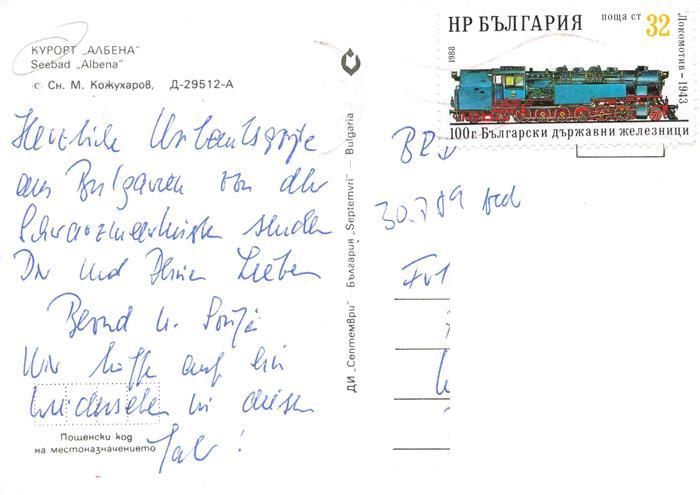 КУРОРТ „АЛБЕНА"
Seebad „Albena"
© Сн. М. Кожухаров, Д-29512-А
Herzliche Urlaubsgrüße
aus Bulgarien von der
Schwarzmeerküste senden
Dir und Deinen Lieben
Bernd u. Sonja
Wir hoffen auf ein
Wiedersehen in diesem
Jahr!
Пощенски код
на местоназначението
ДИ „Септември" България „Septemvri" — Bulgaria
НР БЪЛГАРИЯ
поща ст 32
1988
Локомотив - 1943
100г. Български държавни железници
BRD
30.7.89